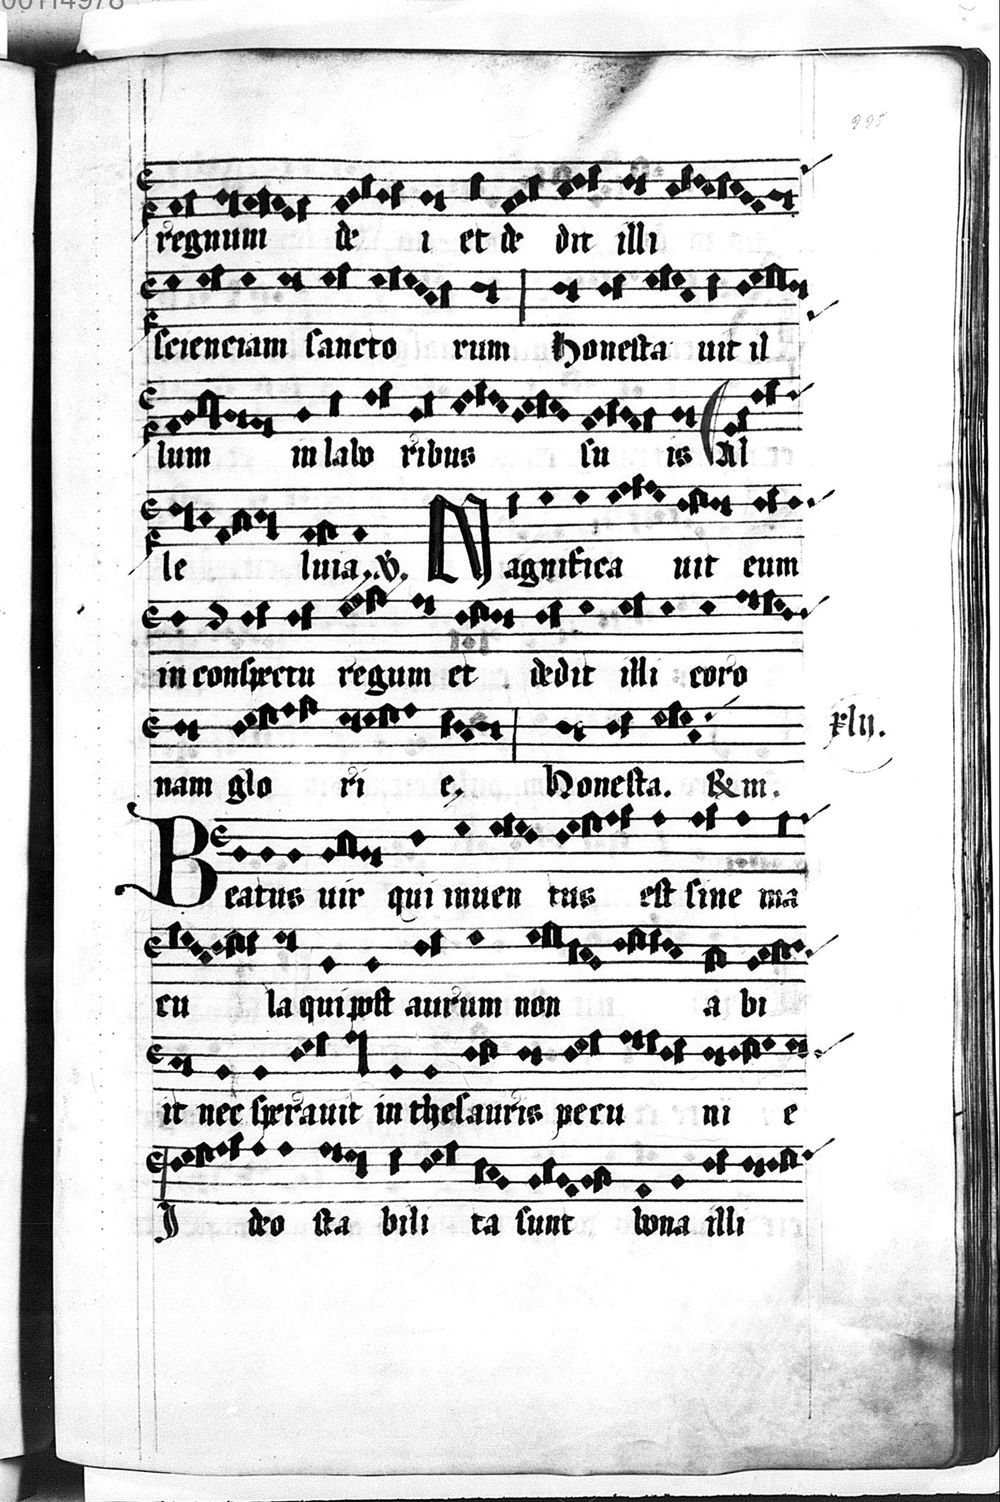 00114978
225
regnum de i et de dit illi
scienciam sancto rum Honesta uit il
lum in labo ribus su is Al
le luia. V. Magnifica uit eum
in conspectu regum et dedit illi coro
nam glo ri e. Honesta. &m. xlij.
Beatus uir qui inuen tus est sine ma
cu la qui post aurum non a bi
it nec sperauit in thesauris pecu ni e
I deo sta bili ta sunt bona illi